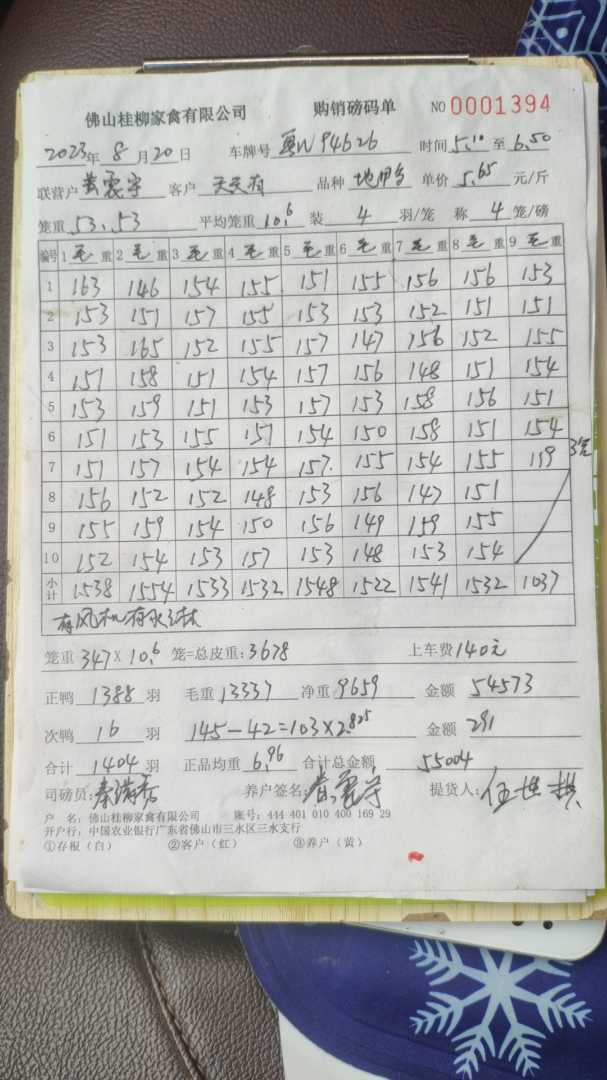 佛山桂柳家禽有限公司 购销磅码单 NO 0001394
2023年 8月20日 车牌号 粤W94626 时间 5.10 至 6.50
联营户 黄震宇 客户 天天有 品种 单价 5.65 元/斤
笼重 53.53 平均笼重 10.6 装 4 羽/笼 称 4 笼/磅
编号 1 毛重 2 毛重 3 毛重 4 毛重 5 毛重 6 毛重 7 毛重 8 毛重 9 毛重
1 163 146 154 155 151 155 156 156 153
2 153 151 157 155 153 153 152 151 151
3 153 165 152 155 157 147 156 152 155
4 151 158 151 154 157 156 148 151 154
5 153 159 151 153 157 153 158 156 151
6 151 153 155 151 154 150 158 151 154
7 151 157 154 154 157 155 154 155 119 3笼
8 156 152 152 148 153 156 147 151
9 155 159 154 150 156 149 159 155
10 152 154 153 157 153 148 153 154
小计 1538 1554 1533 1532 1548 1522 1541 1532 1037
有风机有水
笼重 347×10.6 笼=总皮重:3678 上车费 140元
正鸭 1388 羽 毛重 13337 净重 9659 金额 54573
次鸭 16 羽 145-42=103×2.825 金额 291
合计 1404 羽 正品均重 6.96 合计总金额 55004
司磅员: 养户签名: 黄震宇 提货人:
户 名:佛山桂柳家禽有限公司 账号:444 401 010 400 169 29
开户行:中国农业银行广东省佛山市三水区三水支行
①存根(白) ②客户(红) ③养户(黄)